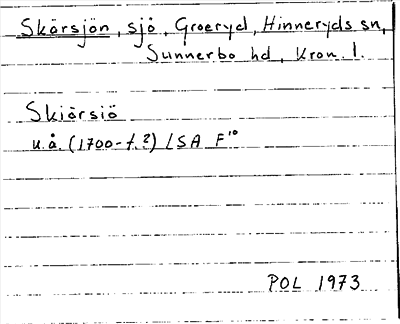 Skärsjön, sjö, Groeryd, Hinneryds sn,
Sunnerbo hd, Kron. l.
Skiärsiö
u.å. (1700-t.?) LSA F¹⁰
POL 1973